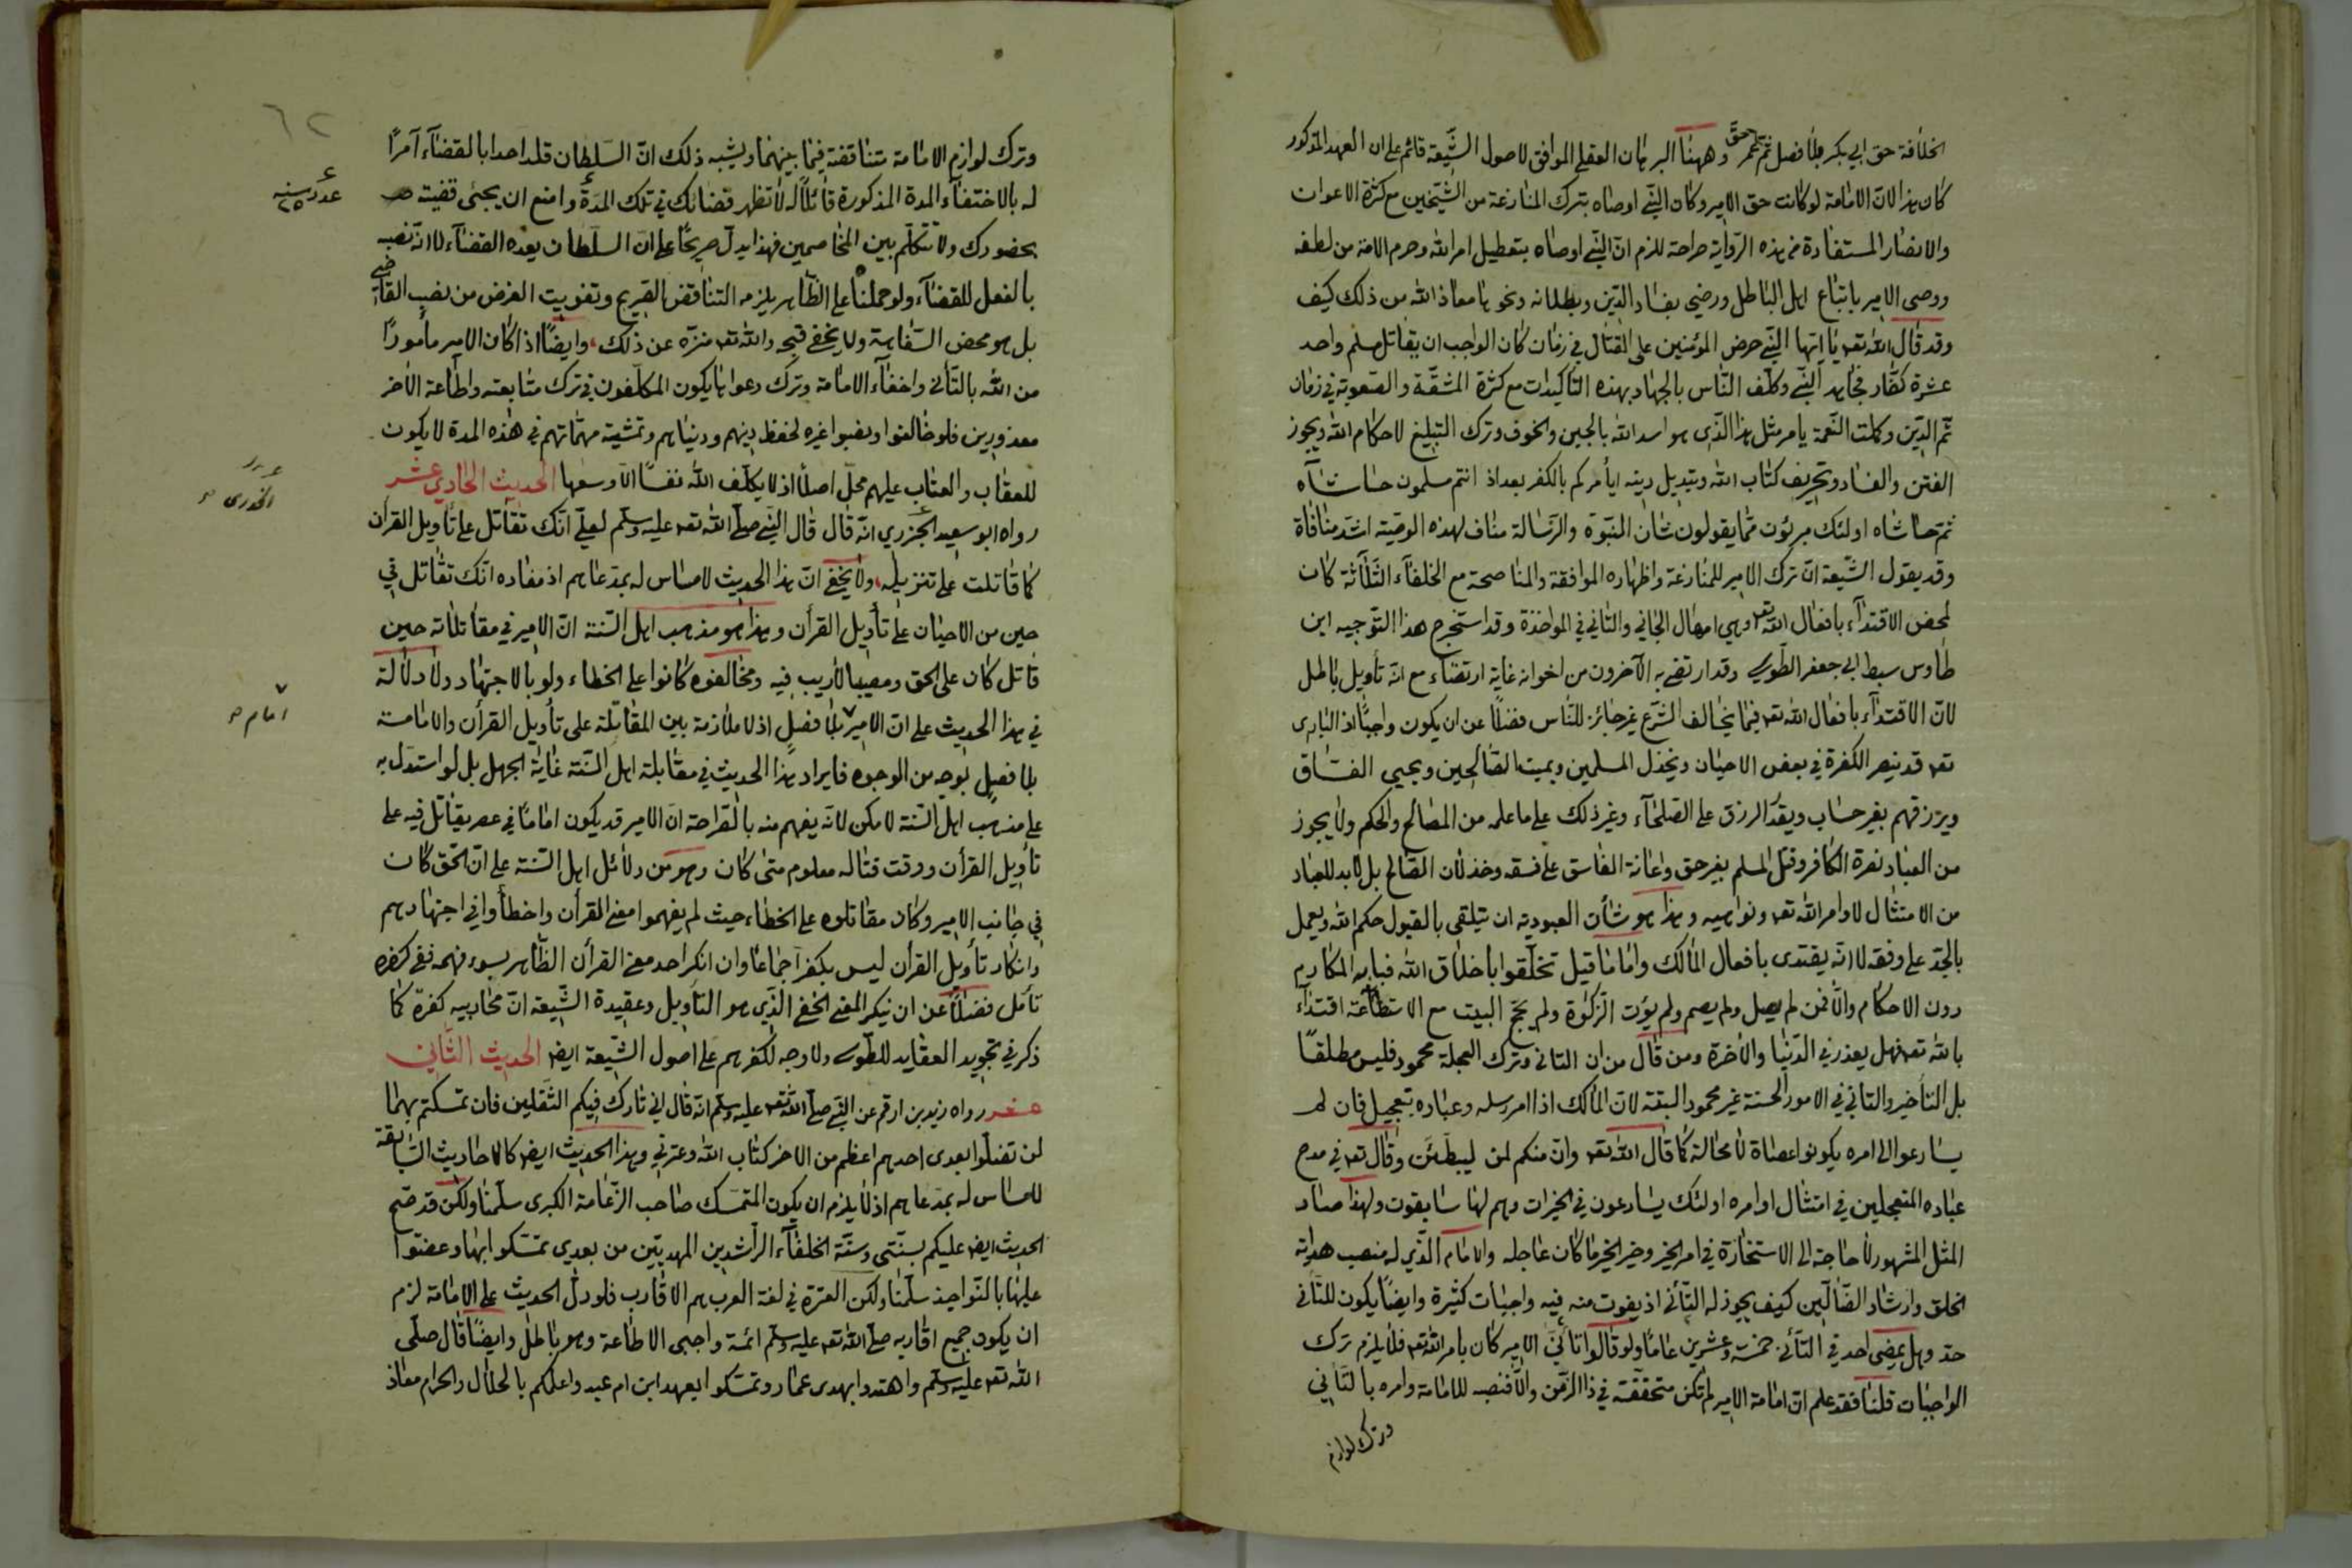 الخلافة حق ابي بكر بلا فصل ثم عمر حق وههنا البرهان العقلي الموافق لاصول الشيعة قائم على ان العهد المذكور
كان هذا لان الامامة لو كانت حق الامير وكان النبي اوصاه بترك المنازعة من الشيخين مع كثرة الاعوان
والانصار المستفادة من هذه الرواية صراحة للزم ان النبي اوصاه بتعطيل امر الله وحرم الامة من لطفه
ووصى الامير باتباع اهل الباطل ورضي بفساد الدين وبطلانه ونحوها معاذ الله من ذلك كيف
وقد قال الله تعه يا ايها النبي حرض المؤمنين على القتال في زمان كان الواجب ان يقاتل مسلم واحد
عشرة كفار فجاهد النبي وكلف الناس بالجهاد بهذه التأكيدات مع كثرة المشقة والصعوبة في زمان
تم الدين وكملت النعمة يامر مثل هذا الذي هو اسد الله بالجبن والخوف وترك التبليغ لاحكام الله ويجوز
الفتن والفساد وتحريف كتاب الله وتبديل دينه ايأمركم بالكفر بعد اذ انتم مسلمون حاشاه
ثم حاشاه اولئك مبرؤن مما يقولون شان النبوة والرسالة مناف لهذه الوصية اشد منافاة
وقد يقول الشيعة ان ترك الامير للمنازعة واظهاره الموافقة والمناصحة مع الخلفاء الثلاثة كان
لمحض الاقتداء بافعال الله تعه وهي امهال الجاني والتاني في المواخذة وقد استخرج هذا التوجيه ابن
طاوس سبط ابي جعفر الطوسي وقد ارتضى به الآخرون من اخوانه غاية ارتضاء مع انه تأويل باطل
لان الاقتداء بافعال الله تعه فيما يخالف الشرع غير جائز للناس فضلا عن ان يكون واجبا اذ الباري
تعه قد ينصر الكفرة في بعض الاحيان ويخذل المسلمين ويميت الصالحين ويحيي الفساق
ويرزقهم بغير حساب ويقدر الرزق على الصلحاء وغير ذلك على ما علمه من المصالح والحكم ولا يجوز
من العباد نصرة الكافر وقتل المسلم بغير حق واعانة الفاسق على فسقه وخذلان الصالح بل لابد للعباد
من الامتثال لاوامر الله تعه ونواهيه وهذا هو شأن العبودية ان يتلقى بالقبول حكم الله ويعمل
بالجد على وفقه لا انه يقتدى بافعال المالك واما ما قيل تخلقوا باخلاق الله فبابه المكارم
دون الاحكام والا فمن لم يصل ولم يصم ولم يؤت الزكوة ولم يحج البيت مع الاستطاعة اقتداء
بالله تعه فهل يعذر في الدنيا والآخرة ومن قال من ان التاني وترك العجلة محمود فليس مطلقا
بل التأخير والتاني في الامور الحسنة غير محمود البتة لان المالك اذا امر رسله وعباده بتعجيل فان لم
يسارعوا الى امره يكونوا عصاة لا محالة كما قال الله تعه وان منكم لمن ليبطئن وقال تعه في مدح
عباده المتعجلين في امتثال اوامره اولئك يسارعون في الخيرات وهم لها سابقون ولهذا صار
المثل المشهور لا حاجة الى الاستخارة في امر الخير وخير الخير ما كان عاجله والامام الذي له منصب هداية
الخلق وارشاد الضالين كيف يجوز له التأني اذ يفوت منه فيه واجبات كثيرة وايضا يكون للتأني
حد وهل يمضي احد في التأني خمسة وعشرين عاما ولو قالوا تأني الامير كان بامر الله تعه فلا يلزم ترك
الواجبات قلنا فقد علم ان امامة الامير لم تكن متحققة في ذا الزمن والا فنصبه للامامة وامره بالتأني
وترك لوازم
٦٢
وترك لوازم الامامة متناقضة فيما بينهما ويشبه ذلك ان السلطان قلد احدا بالقضاء آمرا
له بالاختفاء المدة المذكورة قائلا له لا تظهر قضائك في تلك المدة وامنع ان يجئ قضية
بحضورك ولا تتكلم بين المخاصمين فهذا يدل صريحا على ان السلطان يعده القضاء لا انه نصبه
بالفعل للقضاء ولو حملناه على الظاهر يلزمه التناقض القبيح وتفويت الغرض من نصب القاضي
بل هو محض السفاهة ولا يخفى قبحه والله تعه منزه عن ذلك، وايضا اذا كان الامير مأمورا
من الله بالتأني واخفاء الامامة وترك دعواها يكون المكلفون في ترك متابعته واطاعة الآخر
معذورين فلو خالفوا ونصبوا غيره لحفظ دينهم ودنياهم وتمشية مهماتهم في هذه المدة لا يكون
للعقاب والعتاب عليهم محل اصلا اذ لا يكلف الله نفسا الا وسعها الحديث الحادي عشر
رواه ابو سعيد الجزري انه قال قال النبي صلى الله تعه عليه وسلم لعلي انك تقاتل على تأويل القرآن
الخدري
كما قاتلت على تنزيله، ولا يخفى ان هذا الحديث لا مساس له بمدعاهم اذ مفاده انك تقاتل في
حين من الاحيان على تأويل القرآن وهذا هو مذهب اهل السنة ان الامير في مقاتلاته حين
قاتل كان على الحق ومصيبا لا ريب فيه ومخالفوه كانوا على الخطاء ولو بالاجتهاد ولا دلالة
في هذا الحديث على ان الامير بلا فصل اذ لا ملازمة بين المقاتلة على تأويل القرآن والامامة
امام
بلا فصل بوجه من الوجوه فايراد هذا الحديث في مقابلة اهل السنة غاية الجهل بل لو استدل به
على مذهب اهل السنة لامكن لانه يفهم منه بالصراحة ان الامير قد يكون اماما في عصر يقاتل فيه على
تأويل القرآن ووقت قتاله معلوم متى كان وهو من دلائل اهل السنة على ان الحق كان
في جانب الامير وكان مقاتلوه على الخطاء حيث لم يفهموا معنى القرآن واخطأوا في اجتهادهم
وانكار تأويل القرآن ليس بكفر اجماعا وان انكر احد معنى القرآن الظاهر بسوء فهمه ففي كفره
تأمل فضلا عن ان ينكر المعنى الخفي الذي هو التأويل وعقيدة الشيعة ان محاربيه كفرة كما
ذكر في تجريد العقايد للطوسي ولا وجه لكفرهم على اصول الشيعة ايضا الحديث الثاني
عشر رواه زيد بن ارقم عن النبي صلى الله تعه عليه وسلم انه قال اني تارك فيكم الثقلين فان تمسكتم بهما
لن تضلوا بعدي احدهم اعظم من الآخر كتاب الله وعترتي وهذا الحديث ايضا كالاحاديث السابقة
لا مساس له بمدعاهم اذ لا يلزم ان يكون المتمسك صاحب الزعامة الكبرى سلمنا ولكن قد صح
الحديث ايضا عليكم بسنتي وسنة الخلفاء الراشدين المهديين من بعدي تمسكوا بها وعضوا
عليها بالنواجذ سلمنا ولكن العترة في لغة العرب هم الاقارب فلو دل الحديث على الامامة لزم
ان يكون جميع اقاربه صلى الله تعه عليه وسلم ائمة واجبى الاطاعة وهو باطل وايضا قال صلى
الله تعه عليه وسلم واهتدوا بهدى عمار وتمسكوا بعهد ابن ام عبد واعلمكم بالحلال والحرام معاذ